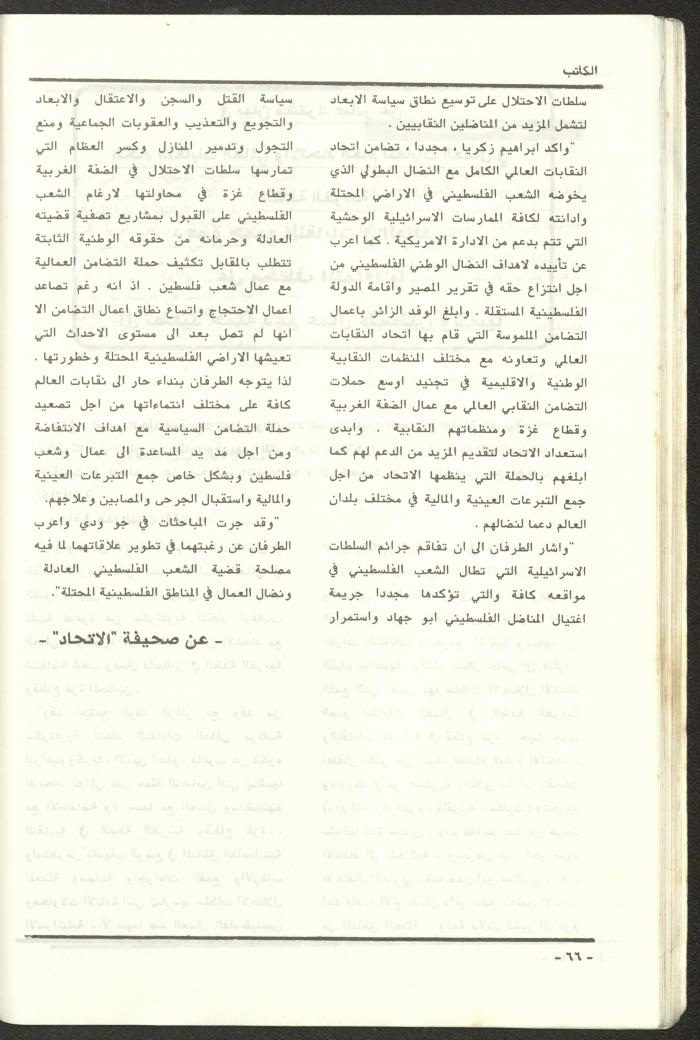 الكاتب
سلطات الاحتلال على توسيع نطاق سياسة الابعاد
لتشمل المزيد من المناضلين النقابيين .
"واكد ابراهيم زكريا ، مجددا ، تضامن اتحاد
النقابات العالمي الكامل مع النضال البطولي الذي
يخوضه الشعب الفلسطيني في الاراضي المحتلة
وادانته لكافة الممارسات الاسرائيلية الوحشية
التي تتم بدعم من الادارة الامريكية . كما اعرب
عن تأييده لاهداف النضال الوطني الفلسطيني من
اجل انتزاع حقه في تقرير المصير واقامة الدولة
الفلسطينية المستقلة . وابلغ الوفد الزائر باعمال
التضامن الملموسة التي قام بها اتحاد النقابات
العالمي وتعاونه مع مختلف المنظمات النقابية
الوطنية والاقليمية في تجنيد اوسع حملات
التضامن النقابي العالمي مع عمال الضفة الغربية
وقطاع غزة ومنظماتهم النقابية . وابدى
استعداد الاتحاد لتقديم المزيد من الدعم لهم كما
ابلغهم بالحملة التي ينظمها الاتحاد من اجل
جمع التبرعات العينية والمالية في مختلف بلدان
العالم دعما لنضالهم .
"واشار الطرفان الى ان تفاقم جرائم السلطات
الاسرائيلية التي تطال الشعب الفلسطيني في
مواقعه كافة والتي تؤكدها مجددا جريمة
اغتيال المناضل الفلسطيني ابو جهاد واستمرار
سياسة القتل والسجن والاعتقال والابعاد
والتجويع والتعذيب والعقوبات الجماعية ومنع
التجول وتدمير المنازل وكسر العظام التي
تمارسها سلطات الاحتلال في الضفة الغربية
وقطاع غزة في محاولتها لارغام الشعب
الفلسطيني على القبول بمشاريع تصفية قضيته
العادلة وحرمانه من حقوقه الوطنية الثابتة
تتطلب بالمقابل تكثيف حملة التضامن العمالية
مع عمال شعب فلسطين . اذ انه رغم تصاعد
اعمال الاحتجاج واتساع نطاق اعمال التضامن الا
انها لم تصل بعد الى مستوى الاحداث التي
تعيشها الاراضي الفلسطينية المحتلة وخطورتها .
لذا يتوجه الطرفان بنداء حار الى نقابات العالم
كافة على مختلف انتماءاتها من اجل تصعيد
حملة التضامن السياسية مع اهداف الانتفاضة
ومن اجل مد يد المساعدة الى عمال وشعب
فلسطين وبشكل خاص جمع التبرعات العينية
والمالية واستقبال الجرحى والمصابين وعلاجهم.
"وقد جرت المباحثات في جو ودي واعرب
الطرفان عن رغبتهما في تطوير علاقاتهما لما فيه
مصلحة قضية الشعب الفلسطيني العادلة
ونضال العمال في المناطق الفلسطينية المحتلة".
- عن صحيفة "الاتحاد" -
- ٦٦ -